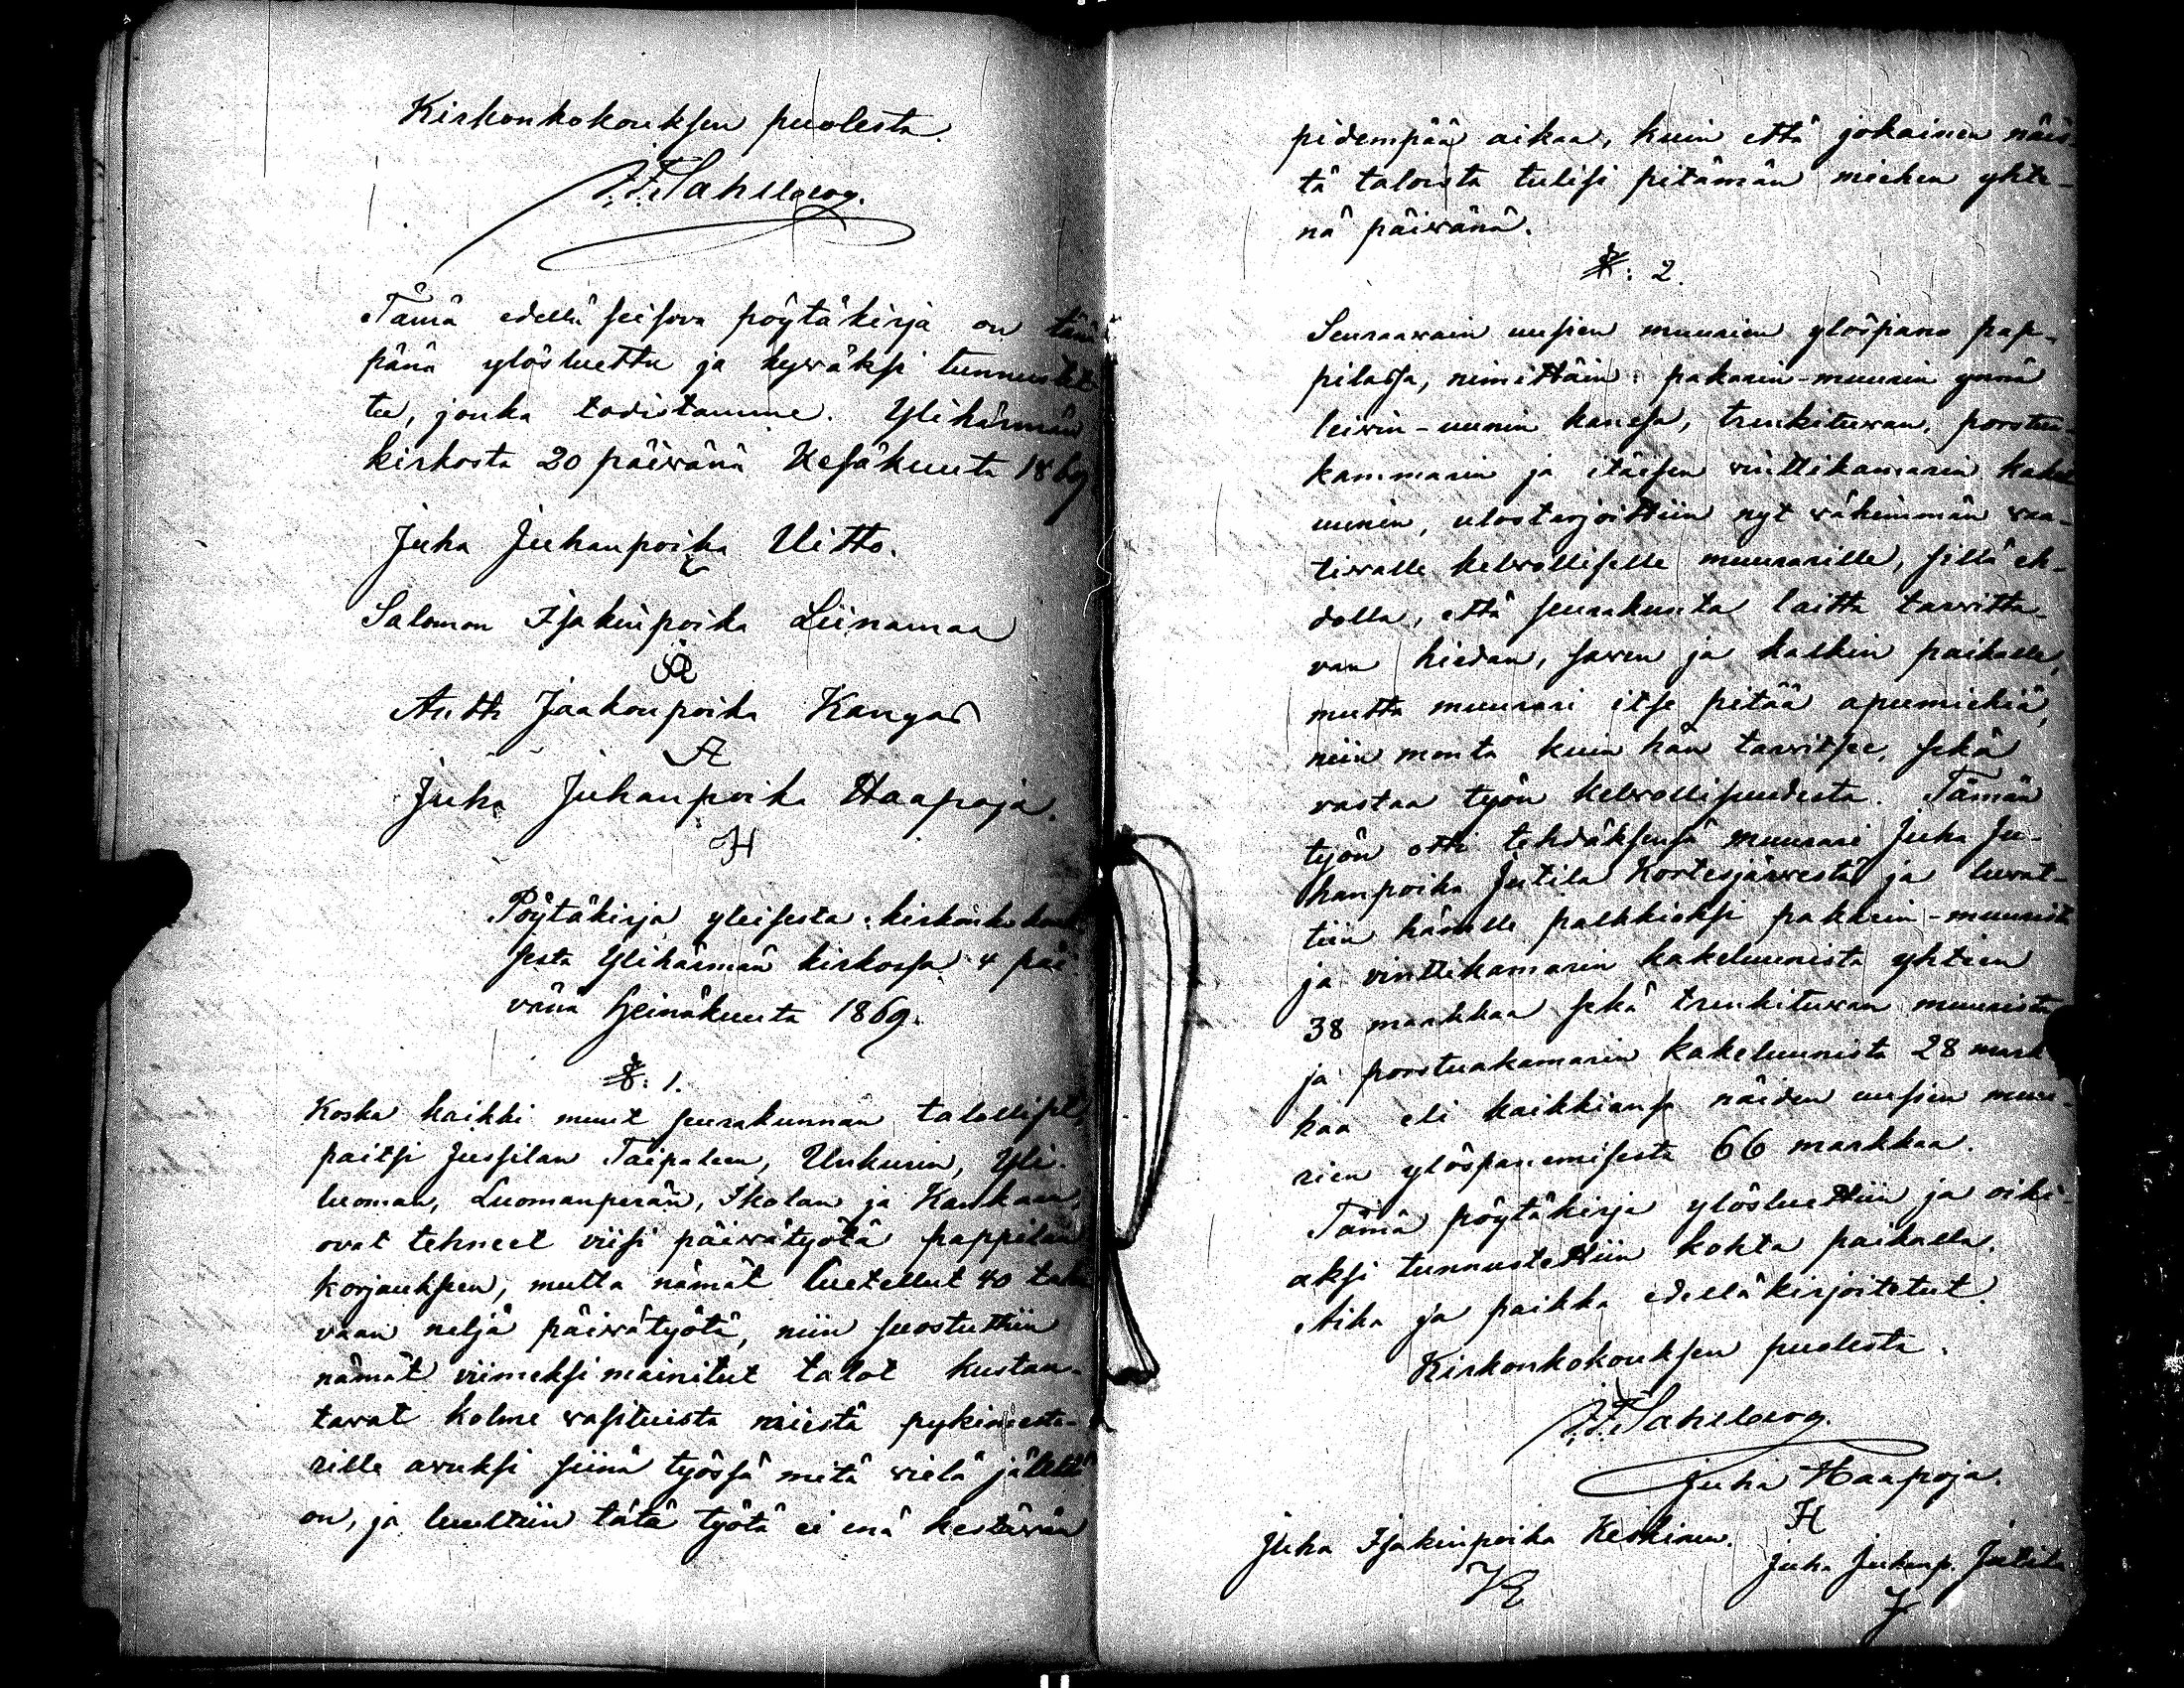 Kirkonkokouksen puolesta.
J. F. Sahlberg.
Tämä edellä seisova pöytäkirja on tänä
pänä ylösluettu ja hyväksi tunnustet
tu, jonka todistamme. Ylihärmän
kirkosta 20 päivänä Kesäkuuta 1869
Juha Juhanpoika Uitto.
Salomon Isakinpoika Liinamaa
Antti Jaakonpoika Kangas
A
Juha Juhanpoika Haapoja.
H
Pöytäkirja yleisesta kirkonkokouk
sesta Ylihärmän kirkossa 4 päi
vänä Heinäkuuta 1869.
§: 1.
Koska kaikki muut seurakunnan talolliset,
paitsi Jussilan Taipaleen, Unkurin, Yli-
luoman, Luomanperän, Ikolan ja Kankaan,
ovat tehneet viisi päivätyötä pappilan
korjauksen, mutta nämät luetellut 40 taloa
vaan neljä päivätyötä, niin suostuttiin
nämät viimeksi mainitut talot kustan-
tavat kolme vasituista miestä pykimesta-
rille avuksi siinä työssä mitä vielä jälellä
on, ja luultiin tätä työtä ei enä kestävän
pidempää aikaa, kuin että jokainen näis-
tä taloista tulisi pitämän miehen yhte-
nä päivänä.
§: 2.
Seuraavain uusien muurien ylöspano pap-
pilassa, nimittäin: pakarin-muurin ynnä
leivin-uunin kanssa, trenkituvan, porstua-
kammarin ja itäisen vinttikamarin kakel
uunin, ulostarjoittiin nyt vähimmän vaa-
tivalle kelvolliselle muurarille, sillä eh-
dolla, että seurakunta laitta tarvitta-
van hiedan, saven ja kalkin paikalle,
mutta muurari itse pitää apumiehiä,
niin monta kuin hän tarvitsee, sekä
vastaa työn kelvollisuudesta. Tämän
työn otti tehdäksensä muurari Juha Ju-
hanpoika Jutila Kortesjärvestä ja luvat-
tiin hänelle palkkioksi pakarin-muurista
ja vinttikamarin kakeluunista yhteen
38 markkaa sekä trenkituvan muurista
ja porstuakamarin kakeluunista 28 mark
kaa eli kaikkiansa näiden uusien muu-
rien ylöspanemisesta 66 markkaa.
Tämä pöytäkirja ylösluettiin ja oiki-
aksi tunnustettiin kohta paikalla.
Aika ja paikka edelläkirjoitetut.
Kirkonkokouksen puolesta.
J. F. Sahlberg.
Juha Haapoja.
H
Juha Isakinpoika Keskinen.
Juha Juhanp. Jutila
J